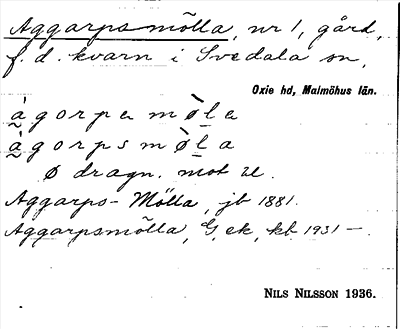 Aggarpsmölla, nr 1, gård,
f. d. kvarn i Svedala sn,
Oxie hd, Malmöhus län.
àgorpa møl̲a
àgorpsmøl̲a
ø dragn. mot œ.
Aggarps-Mölla, jb 1881.
Aggarpsmölla, G, ek, kb 1931 —.
NILS NILSSON 1936.